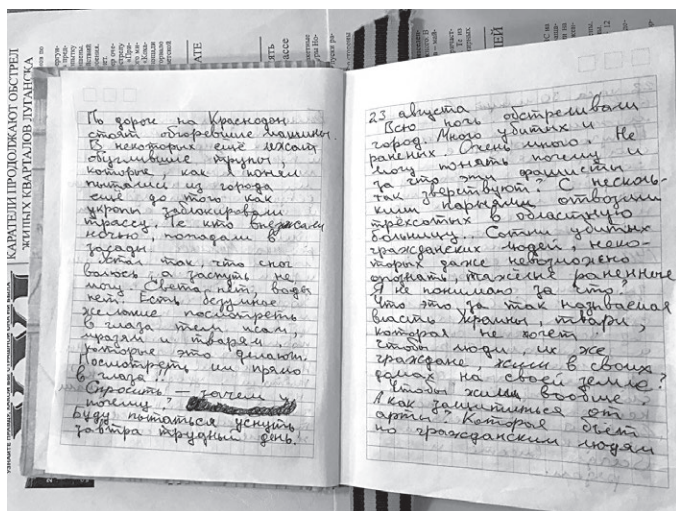 КАРАТЕЛИ ПРОДОЛЖАЮТ ОБСТРЕЛ
ЖИЛЫХ КВАРТАЛОВ ЛУГАНСКА
По дороге на Краснодон
стоят обгоревшие машины.
В некоторых ещё лежат
обуглившие трупы,
которые, как я понял
пытались из города
ещё до того как
укропы заблокировали
трассу. Те кто выезжали
ночью, попадали в
засады.
Устал так, что с ног
валюсь, а заснуть не
могу. Света нет, воды
нет. Есть безумное
желание посмотреть
в глаза тем псам,
мразям и тварям
которые это делают.
Посмотреть им прямо
в глаза!!!
Спросить — зачем и
почему?
Буду пытаться уснуть
завтра трудный день.
23 августа
Всю ночь обстреливали
город. Много убитых и
раненых. Очень много. Не
могу понять почему и
за что эти фашисты
так зверствуют? С несколь-
кими парнями отвозили
трёхсотых в областную
больницу... Сотни убитых
гражданских людей, неко-
торых даже невозможно
опознать, тяжёлые раненные
Я не понимаю за что?
Что это за так называемая
власть Украины, твари,
которая не хочет,
чтобы люди, их же
граждане, жили в своих
домах на своей земле?
Чтобы жили вообще?
А как защититься от
арты? Которая бьёт
по гражданским людям